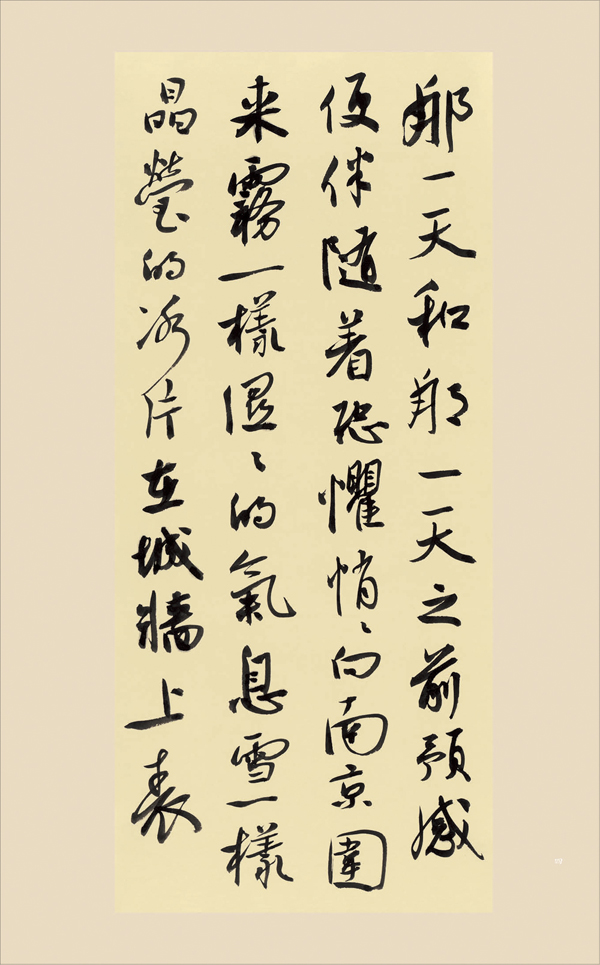 那一天和那一天之前預感
便伴随着恐懼悄悄向南京圍
来霧一樣濕濕的氣息雪一樣
晶瑩的冰片在城牆上表